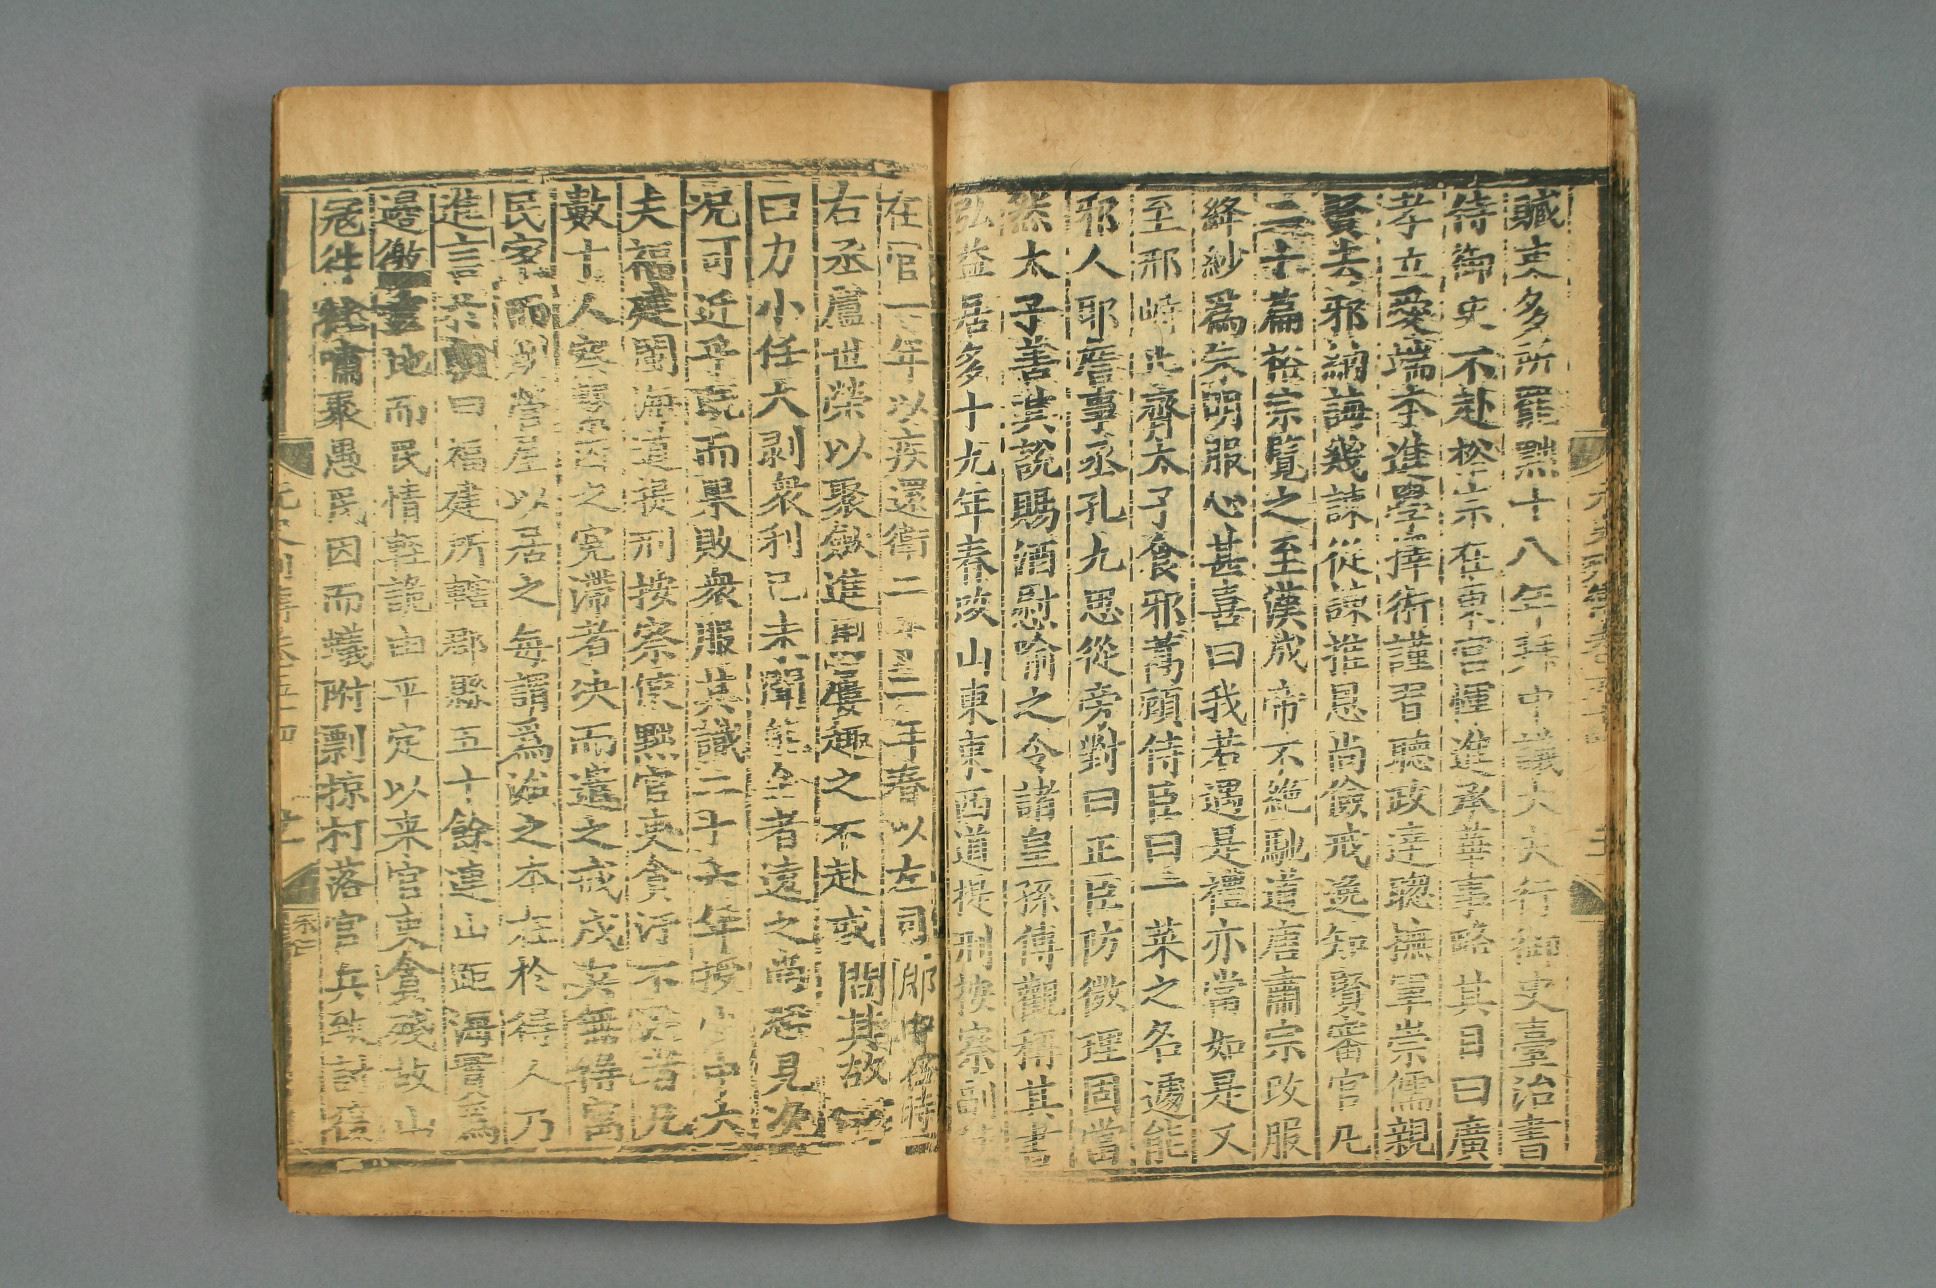 贓吏多所罷黜十八年拜中議大夫行御史臺治書
侍御史不赴裕宗在東宮惲進承華事略其目曰廣
孝立愛端本進學擇術謹習聽政達聰撫軍崇儒親
賢去邪納誨幾諫從諫推恩尚儉戒逸知賢審官凡
二十篇裕宗覽之至漢成帝不絕馳道唐肅宗改服
絳紗爲朱明服心甚喜曰我若遇是禮亦當如是又
至邢峙止齊太子食邪蒿顧侍臣曰一菜之名遽能
邪人耶詹事丞孔九思從旁對曰正臣防微理固當
然太子善其說賜酒慰喻之令諸皇孫傳觀稱其書
弘益居多十九年春改山東東西道提刑按察副使
在官一年以疾還衛二十二年春以左司郎中召時
右丞盧世榮以聚斂進用屢趣之不赴或問其故
曰力小任大剥衆利己未聞能全者遠之尚恐見浼
况可近乎既而果敗衆服其識二十六年授少中大
夫福建閩海道提刑按察使黜官吏貪汚不法者凡
數十人察繫囚之冤滯者决而遣之戒戍兵無得寓
民家而創營屋以居之每謂爲治之本在於得人乃
進言于朝曰福建所轄郡縣五十餘連山距海實爲
邊徼重地而民情輕詭由平定以来官吏貪殘故山
冦徃徃嘯聚愚民因而蟻附剽掠村落官兵致討復
元史列傳卷五十四